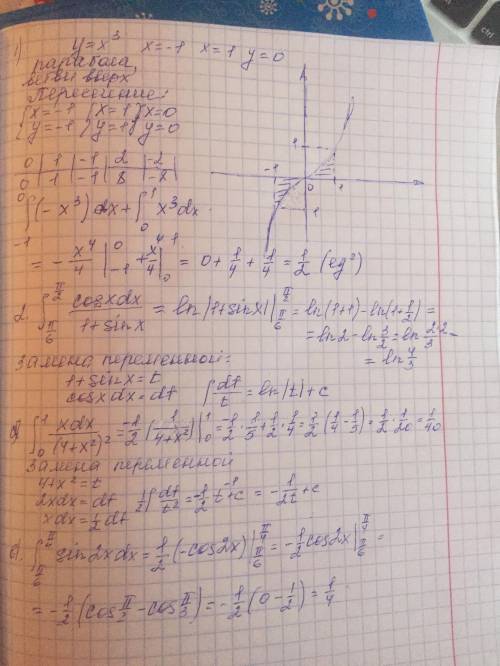 1) y=x³ x=-1 x=1 y=0
парабола,
ветви вверх
Пересечение:
{x=-1 {x=1 {x=0
{y=-1 {y=1 {y=0
0 | 1 | -1 | 2 | -2
0 | 1 | -1 | 8 | -8
-1 1 0 1 1
∫₋₁⁰(-x³)dx+∫₀¹x³dx
= -x⁴/4 |₋₁⁰ + x⁴/4 |₀¹ = 0+1/4+1/4=1/2 (eg²)
2. ∫_{π/6}^{π/2} cosxdx/(1+sinx) = ln|1+sinx| |_{π/6}^{π/2} = ln(1+1)-ln(1+1/2) =
= ln2-ln3/2=ln(2·2)/3=
= ln4/3
Замена переменной:
1+sinx=t
cosxdx=dt ∫dt/t=ln|t|+c
∫₀¹ xdx/(4+x²)²=-1/2(1/(4+x²))|₀¹=-1/2·1/5+1/2·1/4=1/2(1/4-1/5)=1/2·1/20=1/40
Замена переменной
4+x²=t
2xdx=dt 1/2∫dt/t²=-1/2t⁻¹+c=-1/2t+c
xdx=1/2dt
∫_{π/6}^{π/4} sin2xdx=1/2(-cos2x)|_{π/6}^{π/4}=-1/2cos2x|_{π/6}^{π/4}=
=-1/2(cosπ/2-cosπ/3)=-1/2(0-1/2)=1/4